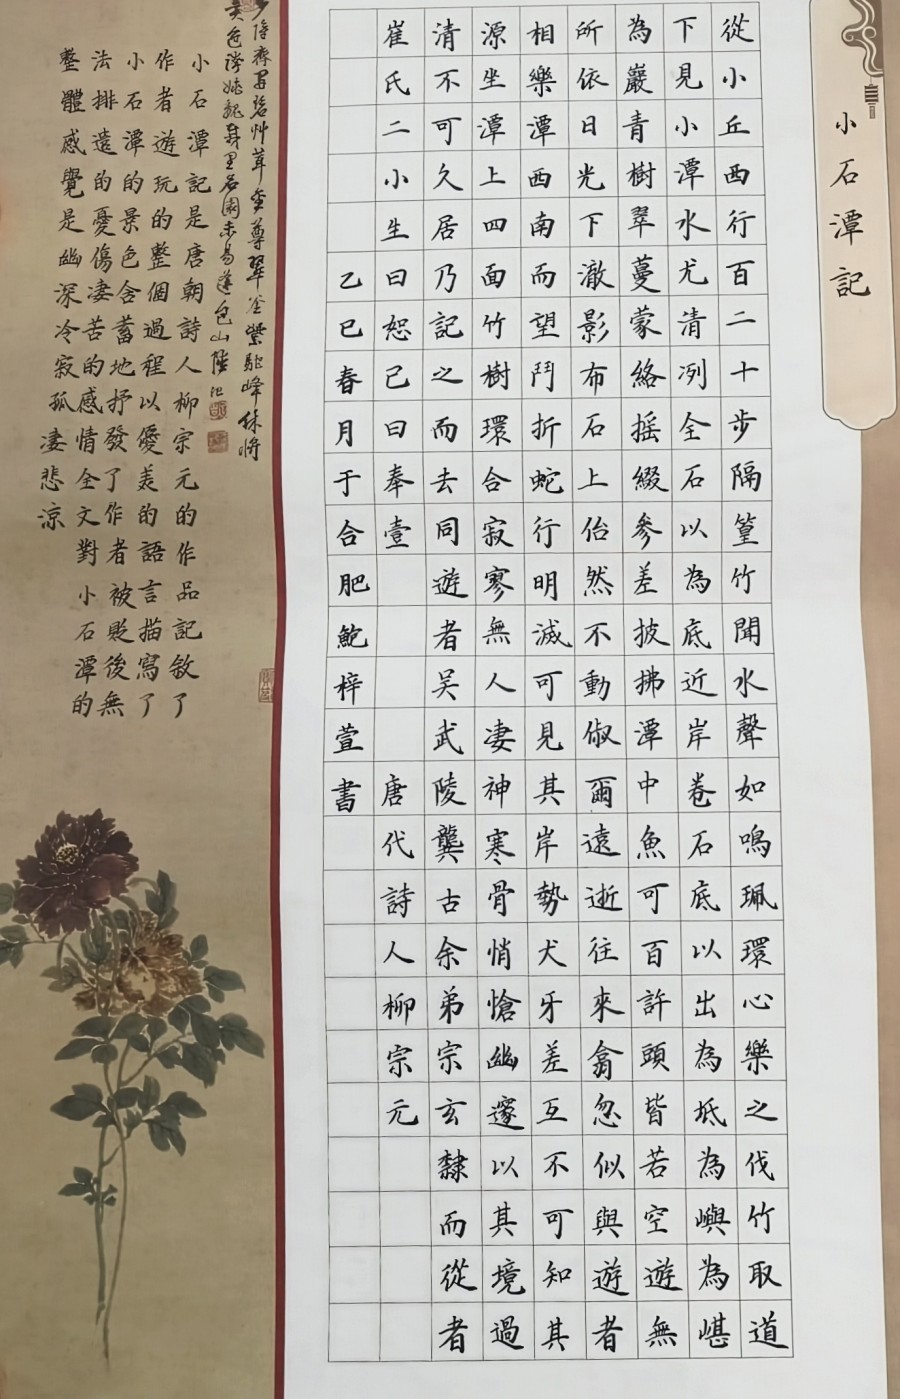 小石潭記
從小丘西行百二十步隔篁竹聞水聲如鳴珮環心樂之伐竹取道
下見小潭水尤清冽全石以為底近岸卷石底以出為坻為嶼為嵁
為巖青樹翠蔓蒙絡摇綴參差披拂潭中魚可百許頭皆若空遊無
所依日光下澈影布石上佁然不動俶爾遠逝往來翕忽似與遊者
相樂潭西南而望鬥折蛇行明滅可見其岸勢犬牙差互不可知其
源坐潭上四面竹樹環合寂寥無人凄神寒骨悄愴幽邃以其境過
清不可久居乃記之而去同遊者吴武陵龔古余弟宗玄隸而從者
崔氏二小生曰恕己曰奉壹 唐代詩人柳宗元
乙巳春月于合肥鮑梓萱書
碧艸茸金尊翠釜紫駝峰休將
里名園未易逢包山陸治
小石潭記是唐朝詩人柳宗元的作品記敘了
作者遊玩的整個過程以優美的語言描寫了
小石潭的景色含蓄地抒發了作者被貶後無
法排遣的憂傷凄苦的感情全文對小石潭的
整體感覺是幽深冷寂孤凄悲涼